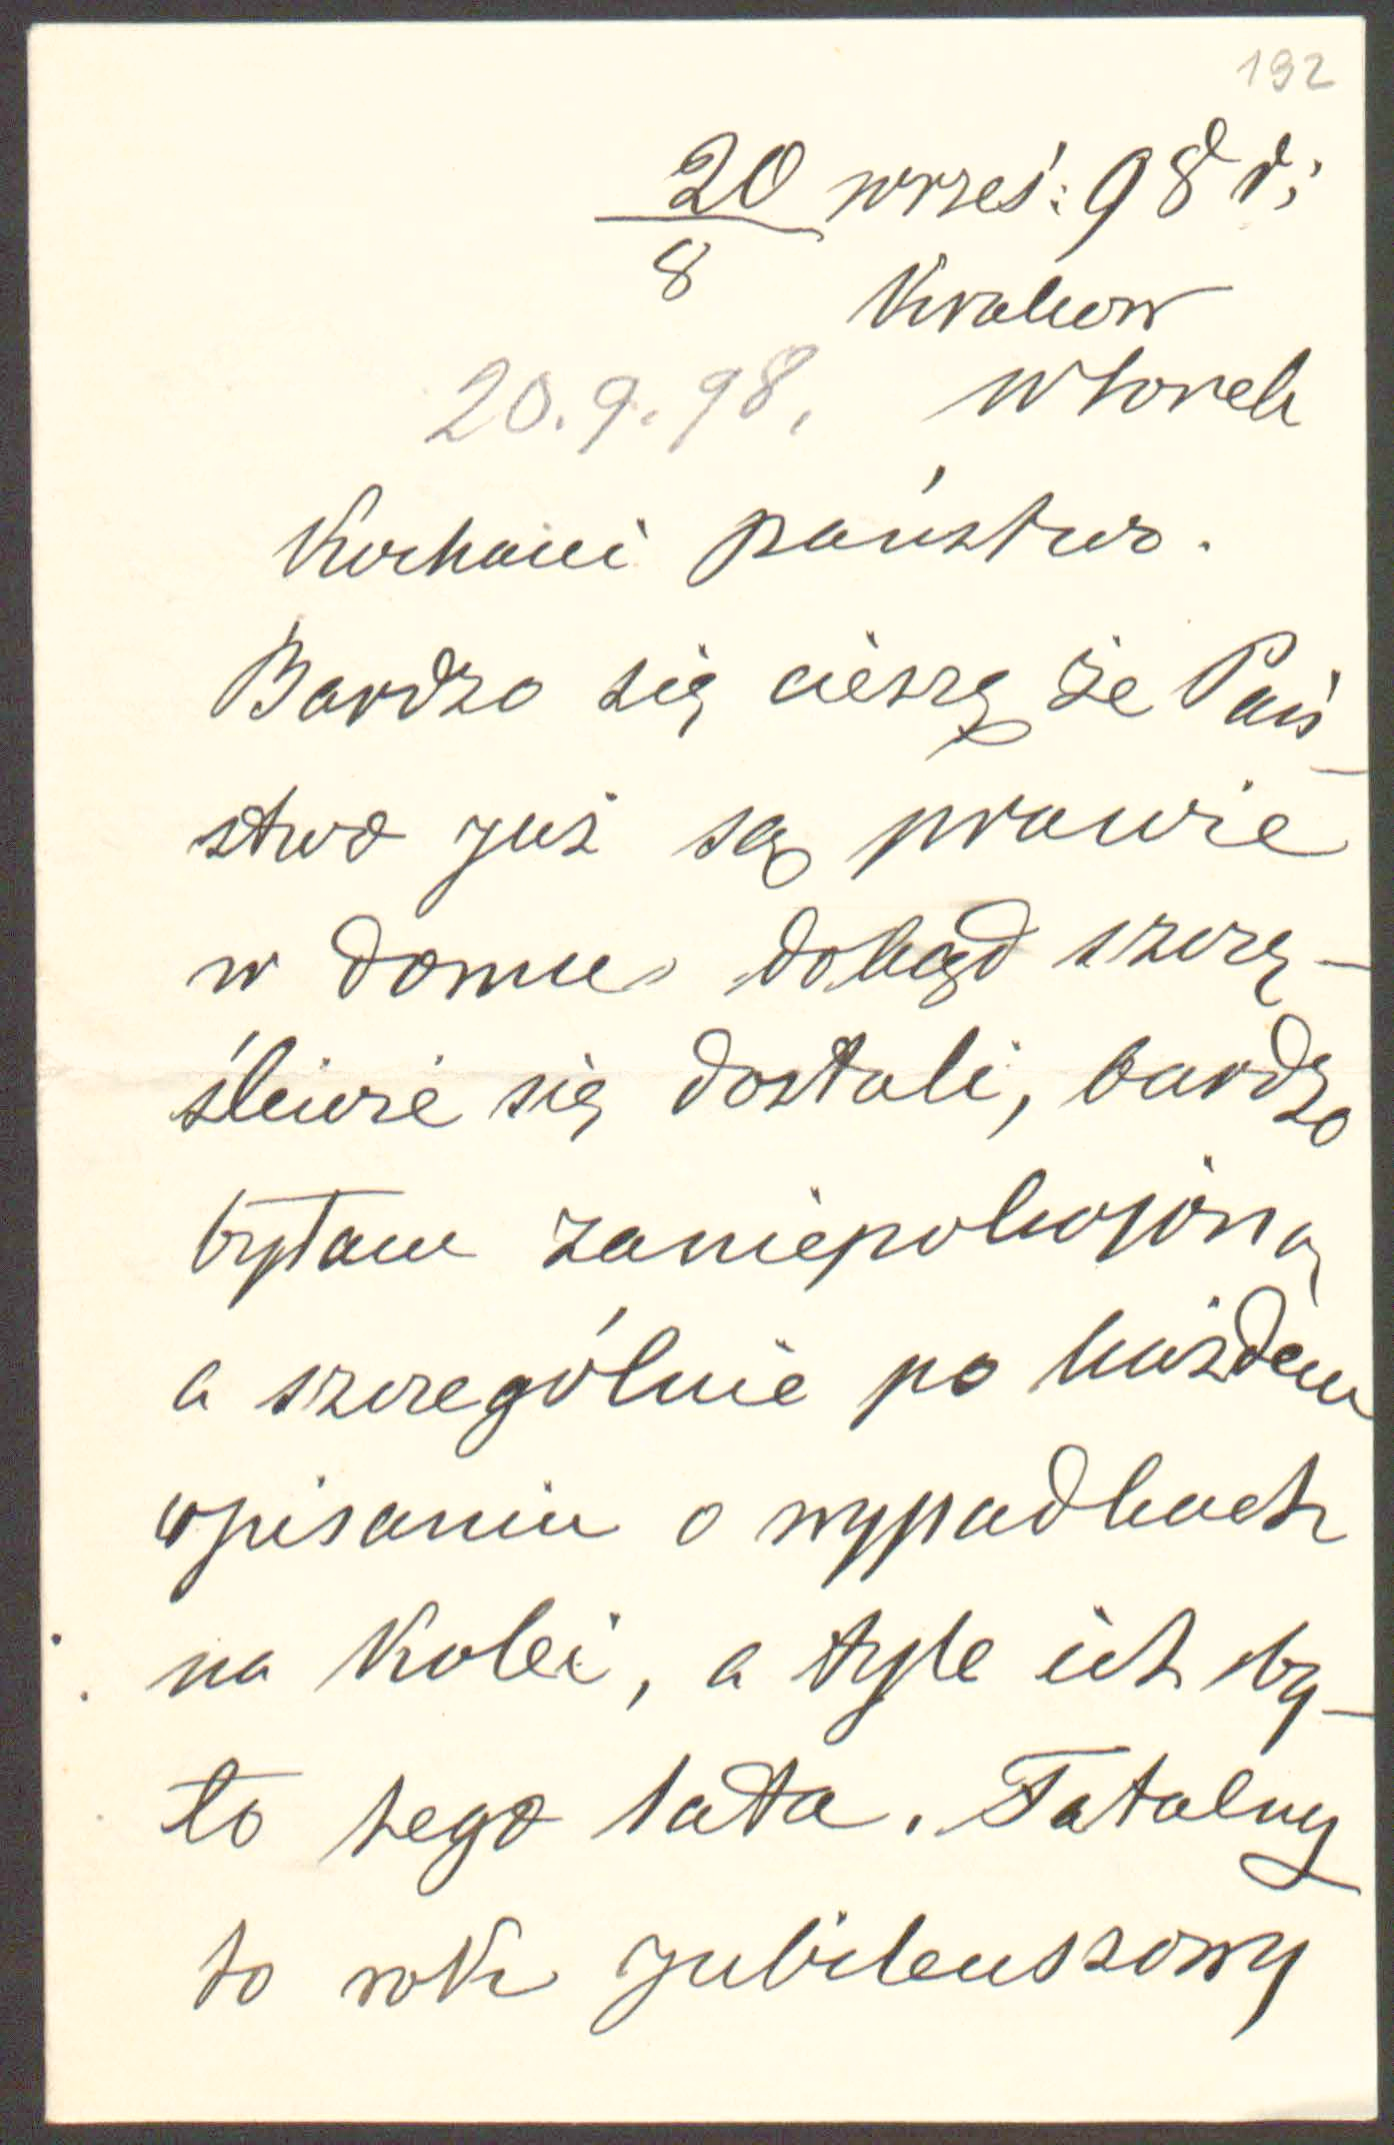 192
20 wrześ: 98 r:
8
Krakow
20.9.98. wtorek
Kochani państwo.
Bardzo się cieszę że Pań-
stwo już są prawie
w domu, dokąd szczę-
śliwie się dostali, bardzo
byłam zaniepokojoną
a szczególnie po każdem
opisaniu o wypadkach
na kolei, a tyle ich by-
ło tego lata. Fatalny
to rok jubileuszowy